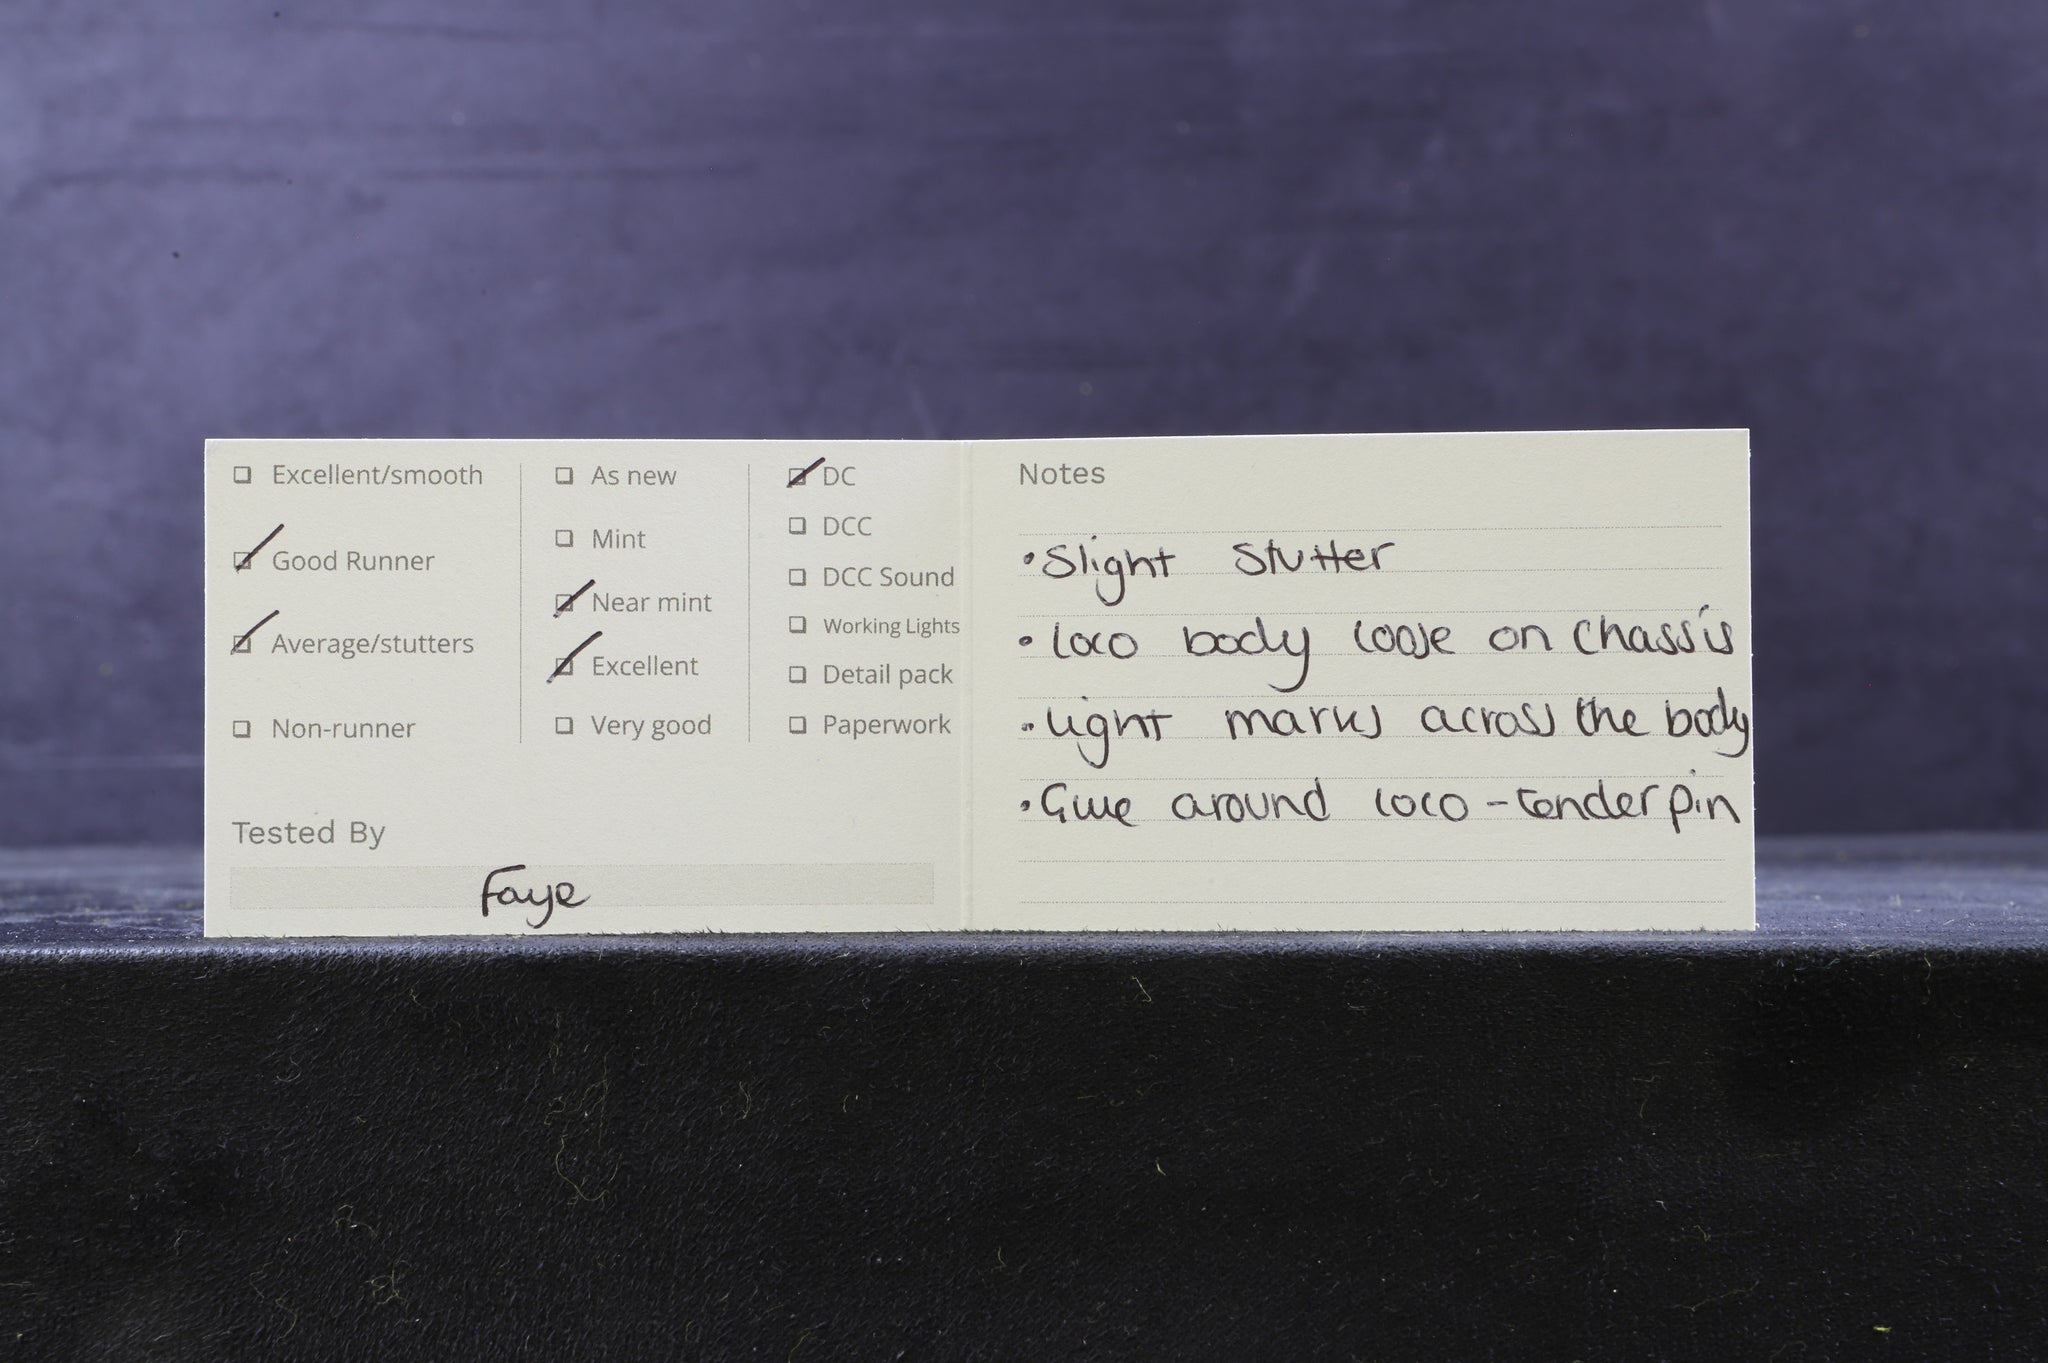 Excellent/smooth
Good Runner
Average/stutters
Non-runner
As new
Mint
Near mint
Excellent
Very good
DC
DCC
DCC Sound
Working Lights
Detail pack
Paperwork
Tested By
Faye
Notes
• Slight Stutter
• loco body loose on chassis
• light marks across the body
• Glue around loco - tender pin